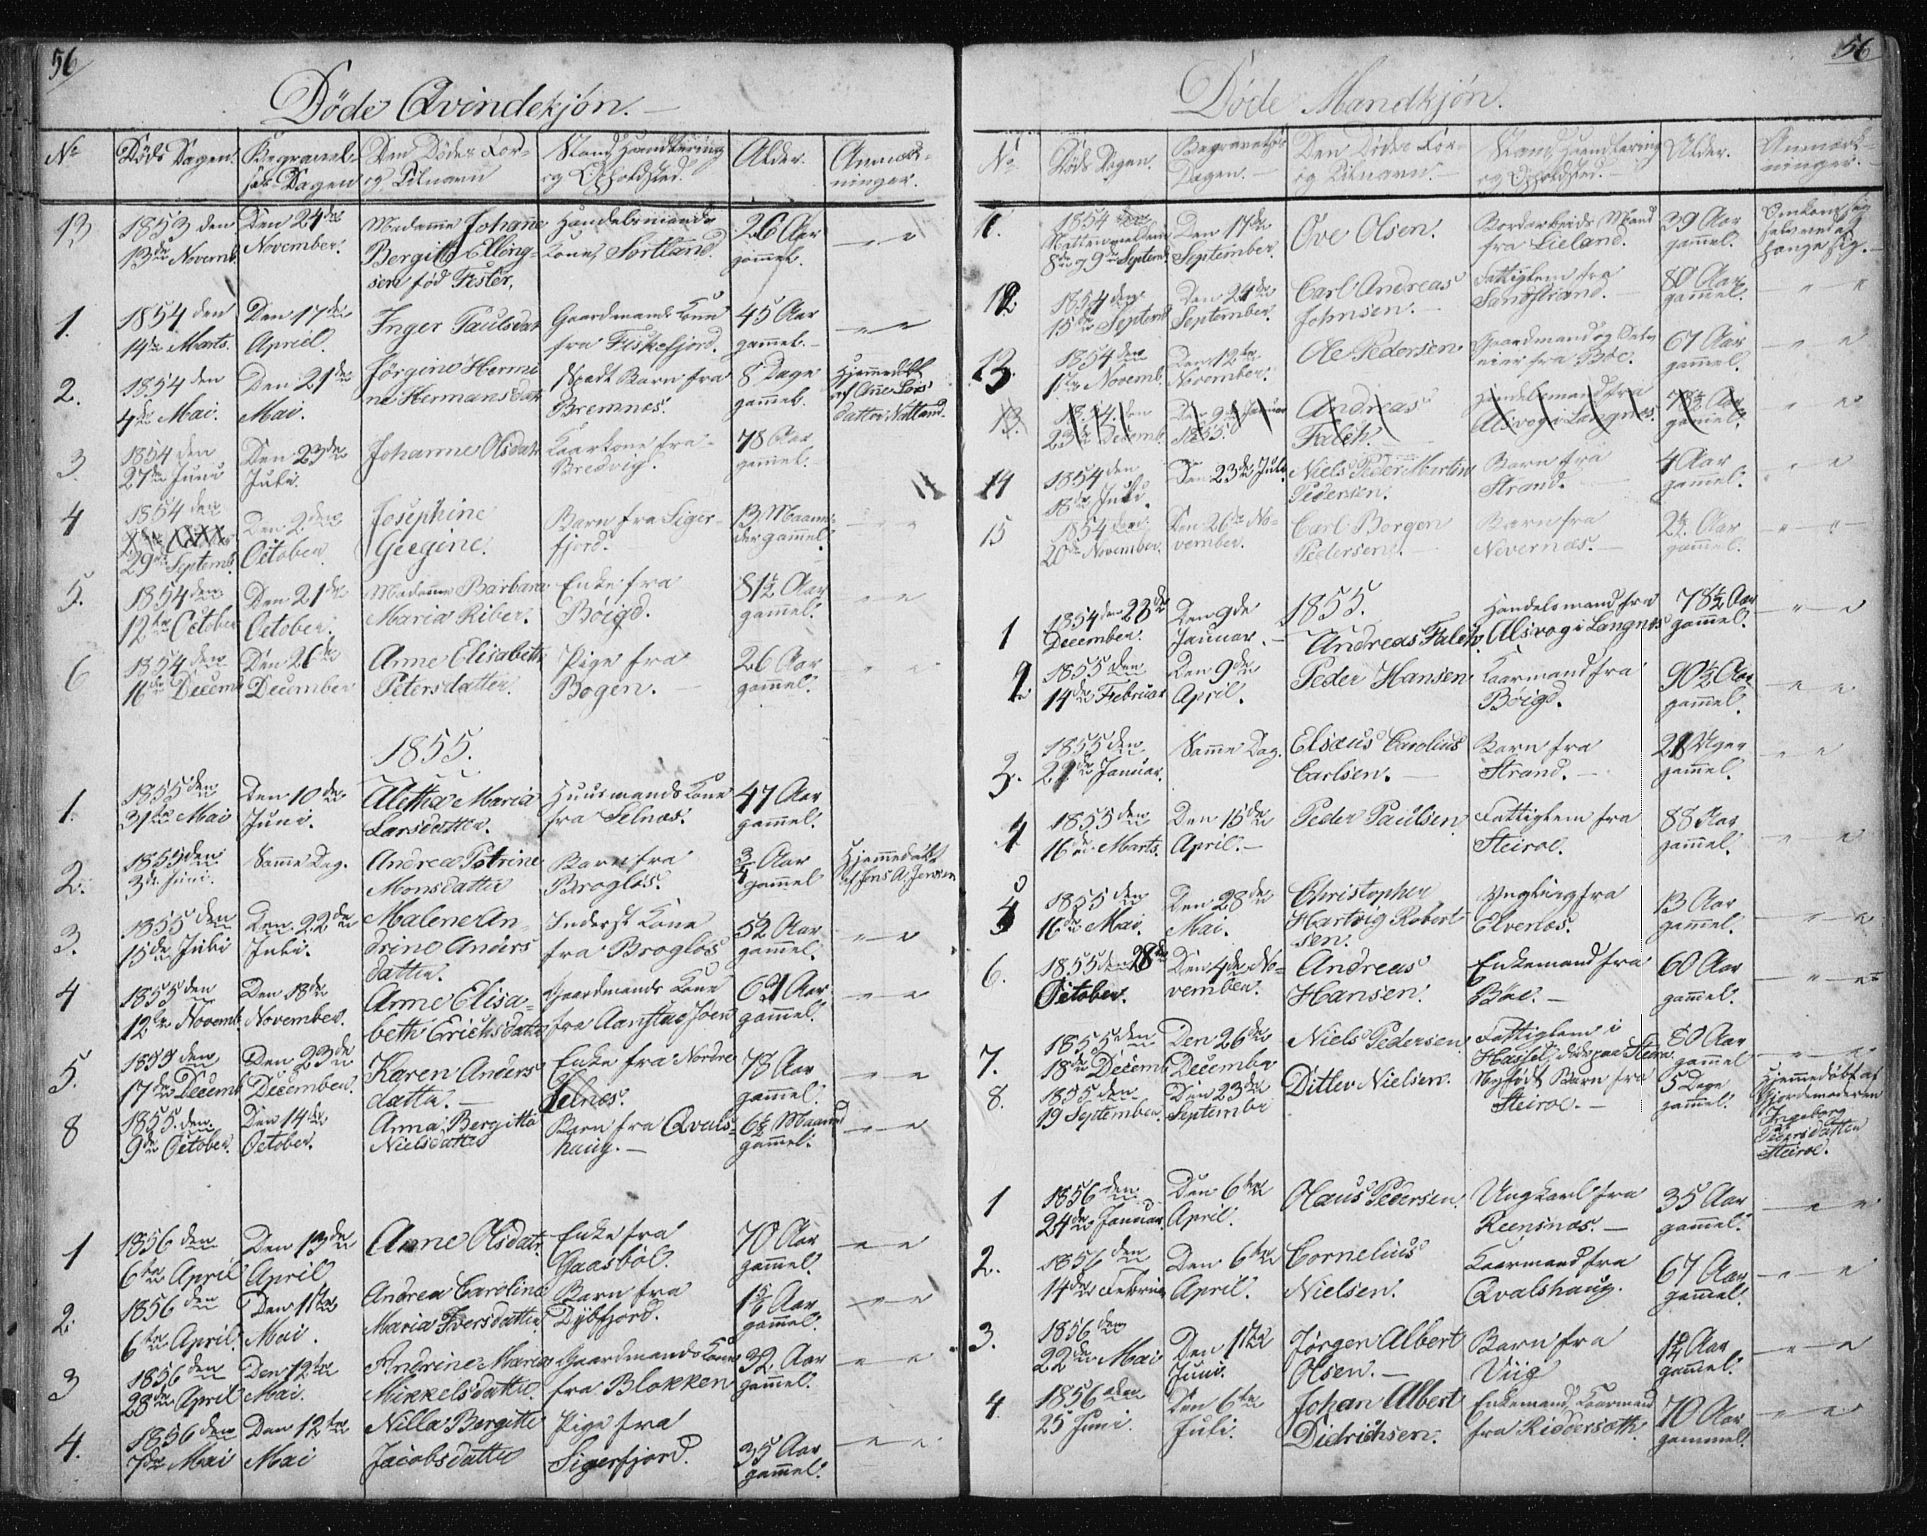 56
Døde Qvindekjøn.
No
Døds Dagen.
Begravel-
ses-Dagen
Den Dødes For-
og Tilnavn
Stand, Handtering
og Opholdsted.
Alder.
Anmærk-
ninger.
13
1853 den
13de Novemb.
Den 24de
November.
Madame Johanne
Bergite Elling-
sen fød Fester.
Handelsmands
Kone, Sortland.
26 Aar
gammel.
" "
1.
1854 den
14de Marts.
Den 17de
April.
Inger Paulsdatr
Gaardmands Kone
fra Fiskefjord.
45 Aar
gammel.
" "
2.
1854 den
4de Mai.
Den 21de
Mai.
Jørgine Hermi
ne Hermansdatr
Spædt Barn fra
Bremnes.
8 Dage
gammel.
Hjemmedøbt
af Ane Lars
datter
3
1854 den
27de Juni
Den 23de
Juli.
Johanne Olsdatr
Kaarkone fra
Bredvig.
78 Aar
gammel.
4
1854 den
29de Septemb.
Den 2den
October.
Josephine
Georgine.
Barn fra Siger-
fjord.
13 Maane-
der gammel.
" "
5.
1854 den
12te October
Den 21de
October.
Madame Barbara
Maria Riber.
Enke fra
Bøigd.
81½ Aar
gammel.
" "
6
1854 den
16de Decemb
Den 26de
December
Anne Elisabeth
Petersdatter.
Pige fra
Bogen.
26 Aar
gammel.
" "
1855.
1.
1855 den
31te Mai
Den 10de
Juni.
Aletha Maria
Larsdatter.
Huusmands Kone
fra Selnæs.
47 Aar
gammel.
2.
1855 den
3de Juni.
Samme Dag.
Andrea Petrine
Monsdatter
Barn fra
Brogløs.
¾ Aar
gammel
Hjemmedøbt
af Jens A. Jensen
3.
1855 den
15de Juli
Den 22de
Juli.
Malene An-
drine Anders
datter.
Inderst Kone
fra Brogløs
52 Aar
gammel.
" "
4
1855 den
12te Novemb.
Den 18de
November.
Anne Elisa-
beth Erichsdatter
Gaardmands Kone
fra Aanstad Jøen
64 Aar
gammel.
" "
5.
1855 den
17de Decemb
Den 23de
December.
Karen Anders
datter.
Enke fra Nordre
Selnæs.
78 Aar
gammel.
" "
8
1855 den
9de October.
Den 14de
October.
Anna Bergitta
Nielsdatter
Barn fra Qvals-
haug.
6½ Maaned
gammel.
" "
1
1856 den
6te April
Den 13de
April
Anne Olsdatr.
Enke fra
Gaasbøl.
70 Aar
gammel.
" "
2.
1856 den
6te April.
Den 1ste
Mai.
Andrea Caroline
Maria Iversdatter.
Barn fra
Dybfjord.
1 5/6 Aar
gammel.
" "
3
1856 den
28de April
Den 12te
Mai.
Andrine Maria
Mikkelsdatter.
Gaardmands Kone
fra Blokken
32 Aar
gammel.
" "
4.
1856 den
7de Mai
Den 12te
Mai
Nilla Bergitte
Jacobsdatter
Pige fra
Sigerfjord.
35 Aar
gammel.
" "
56
Døde Mandkjøn.
No
Døds Dagen.
Begravelses
Dagen.
Den Dødes For-
og Tilnavn.
Stand, Handtering
og Opholdsted.
Alder.
Anmærk-
ninger.
11.
1854 den
Natten mellem
8de og 9de Septemb.
Den 17de
September.
Ove Olsen.
fra Lieland.
39 Aar
gammel.
Omkom sig
selv ved at
hænge sig.
12
1854 den
15de Septemb
Den 24de
September.
Carl Andreas
Johnsen.
Fattiglem fra
Sandstrand.
80 Aar
gammel.
" "
13.
1854 den
1ste Novemb.
Den 12te
November.
Ole Pedersen
Gaardmand og Selv
eier fra Bøe.
67 Aar
gammel.
" "
13.
1854 den
23de Decemb.
Den 9de Januar
1855.
Andreas
Falch.
Handelsmand fra
Alsvog i Langnæs.
78½ Aar
gammel.
" "
14
1854 den
18de Juli.
Den 23de Juli.
Niels Peder Martin
Pedersen.
Barn fra
Strand.
4 Aar
gammel.
" "
15
1854 den
20de November.
Den 26de No-
vember.
Carl Borgen
Pedersen.
Barn fra
Nevernæs.
2½ Aar
gammel.
" "
1855.
1
1854 den 23de
December.
Den 9de
Januar.
Andreas Falch.
Handelsmand fra
Alsvog i Langnæs
78½ Aar
gammel.
" "
2
1855 den
14de Februar
Den 9de
April.
Peder Hansen
Kaarmand fra
Bøigd.
90½ Aar
gammel.
" "
3.
1855 den
21de Januar.
Samme Dag.
Elsæus Carolius
Carlsen.
Barn fra
Strand.
21 Uger
gammel.
" "
4
1855 den
16de Marts.
Den 15de
April.
Peder Paulsen
Fattiglem fra
Steiroe.
88 Aar
gammel.
" "
5
1855 den
16de Mai.
Den 28de
Mai.
Christopher
Hartvig Robert
sen.
Yngling fra
Elvenæs.
13 Aar
gammel.
" "
6.
1855 den 28de
October.
Den 4de No-
vember.
Andreas
Hansen.
Enkemand fra
Bøe.
60 Aar
gammel.
" "
7.
1855 den
18de Decemb
Den 26de
December
Niels Pedersen.
Fattiglem i
Hassel, døde paa Steiro.
80 Aar
gammel
" "
8.
1855 den
19 September.
Den 23de
September
Ditlev Nielsen.
Nyfødt Barn fra
Steiroe.
5 Dage
gammel.
Hjemmedøbt af
Gjordemoderen
Ingeborg
Pedersdatter
Steiroe.
1
1856 den
24de Januar.
Den 6te
April.
Olaus Pedersen.
Ungkarl fra
Reensnæs.
35 Aar
gammel.
" "
2.
1856 den
14de Februar
Den 6te
April.
Cornelius
Nielsen.
Kaarmand fra
Qvalshaug.
67 Aar
gammel.
" "
3.
1856 den
22de Mai
Den 1ste
Juni.
Jørgen Albert
Olsen.
Barn fra
Viig
1¼ Aar
gammel.
" "
4.
1856 den
25 Juni.
Den 6te
Juli.
Johan Albert
Didrichsen.
Enkemand, Kaarmand
fra Riddersæth.
70 Aar
gammel.
" "